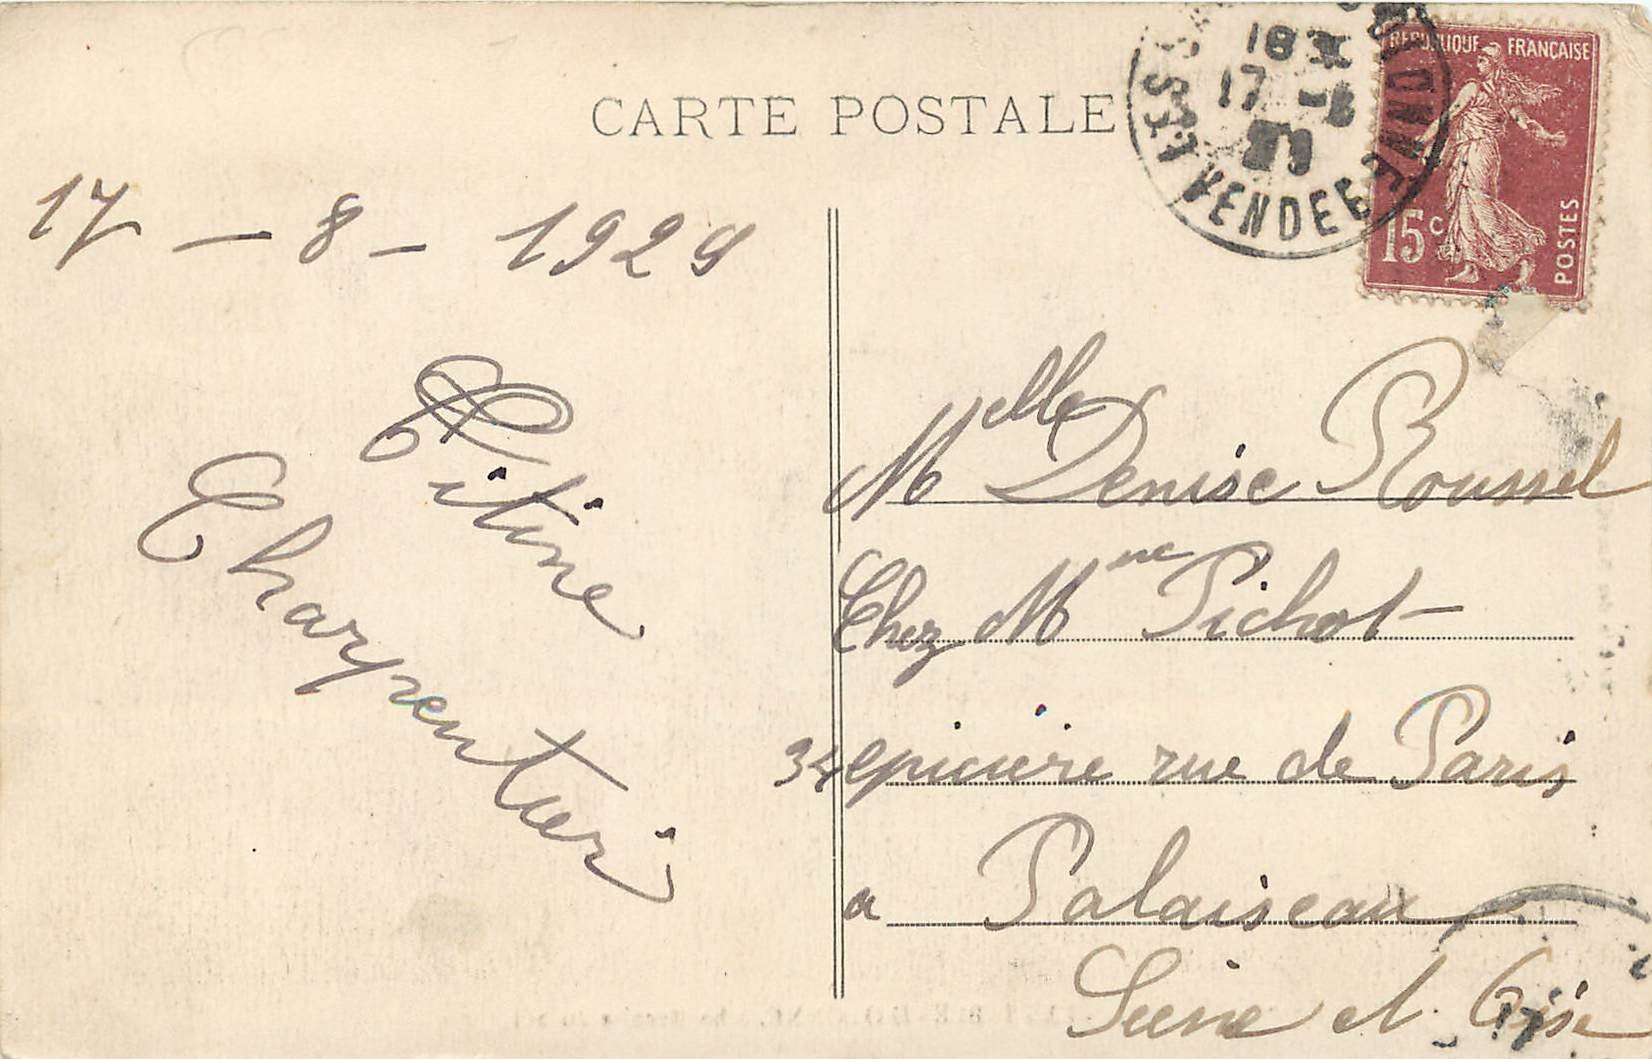 CARTE POSTALE
RÉPUBLIQUE FRANÇAISE
15c
POSTES
18
17 -8
29
VENDEE
17 - 8 - 1929
Titine
Charpentier
Melle Denise Roussel
Chez Mme Pichot
34 epicière rue de Paris
a Palaiseau
Seine et Oise